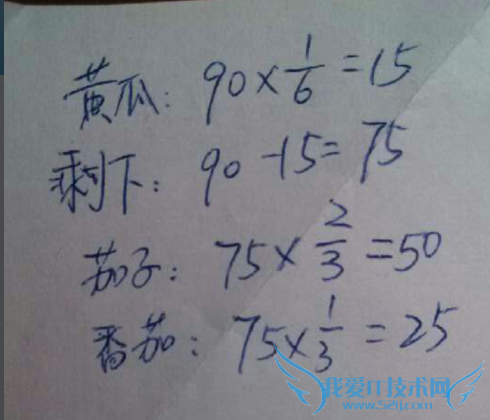 黄瓜: 90×1/6=15
剩下: 90-15=75
茄子: 75×2/3=50
番茄: 75×1/3=25
我爱IT技术网
www.52ij.com